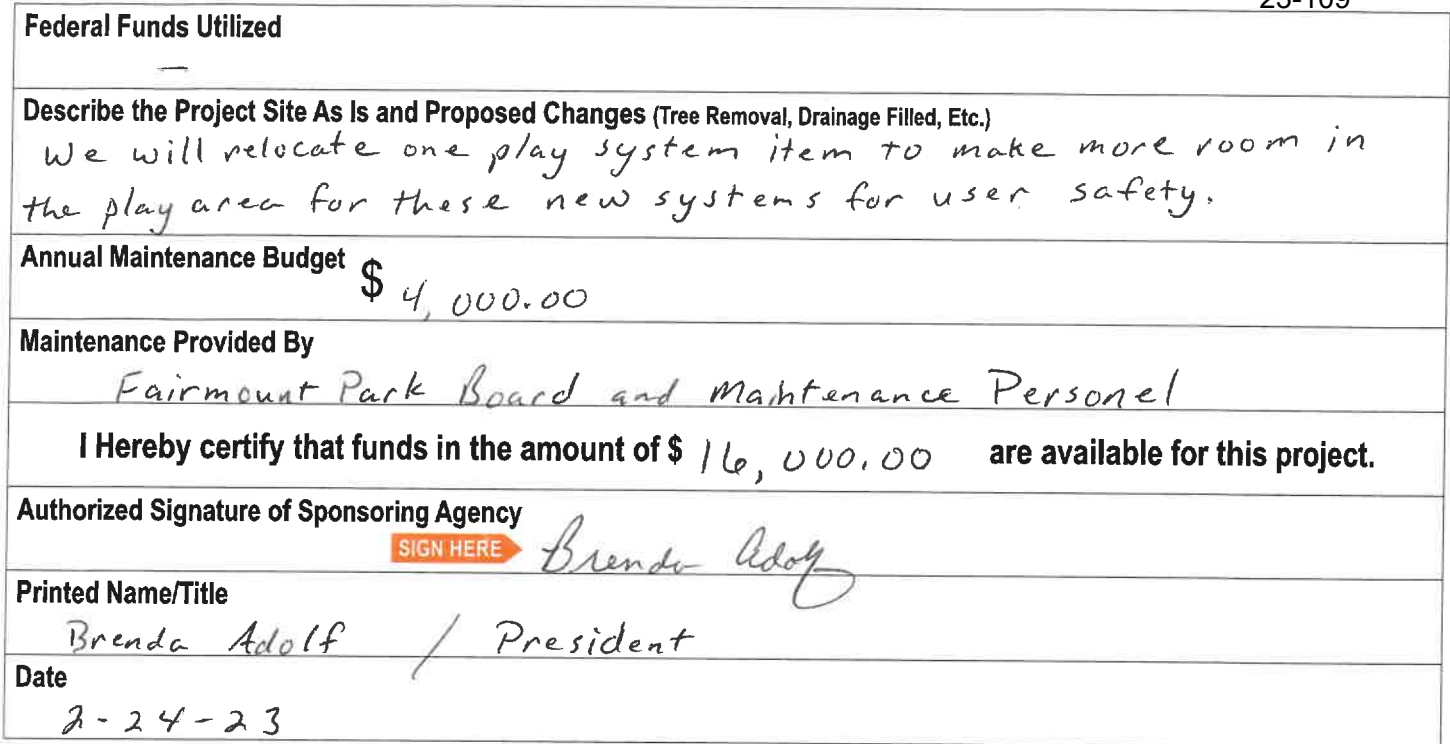 23-109
Federal Funds Utilized
—
Describe the Project Site As Is and Proposed Changes (Tree Removal, Drainage Filled, Etc.)
We will relocate one play system item to make more room in
the play area for these new systems for user safety.
Annual Maintenance Budget $ 4,000.00
Maintenance Provided By
Fairmount Park Board and Maintenance Personel
I Hereby certify that funds in the amount of $ 16,000.00 are available for this project.
Authorized Signature of Sponsoring Agency
SIGN HERE Brenda Adolf
Printed Name/Title
Brenda Adolf / President
Date
2-24-23